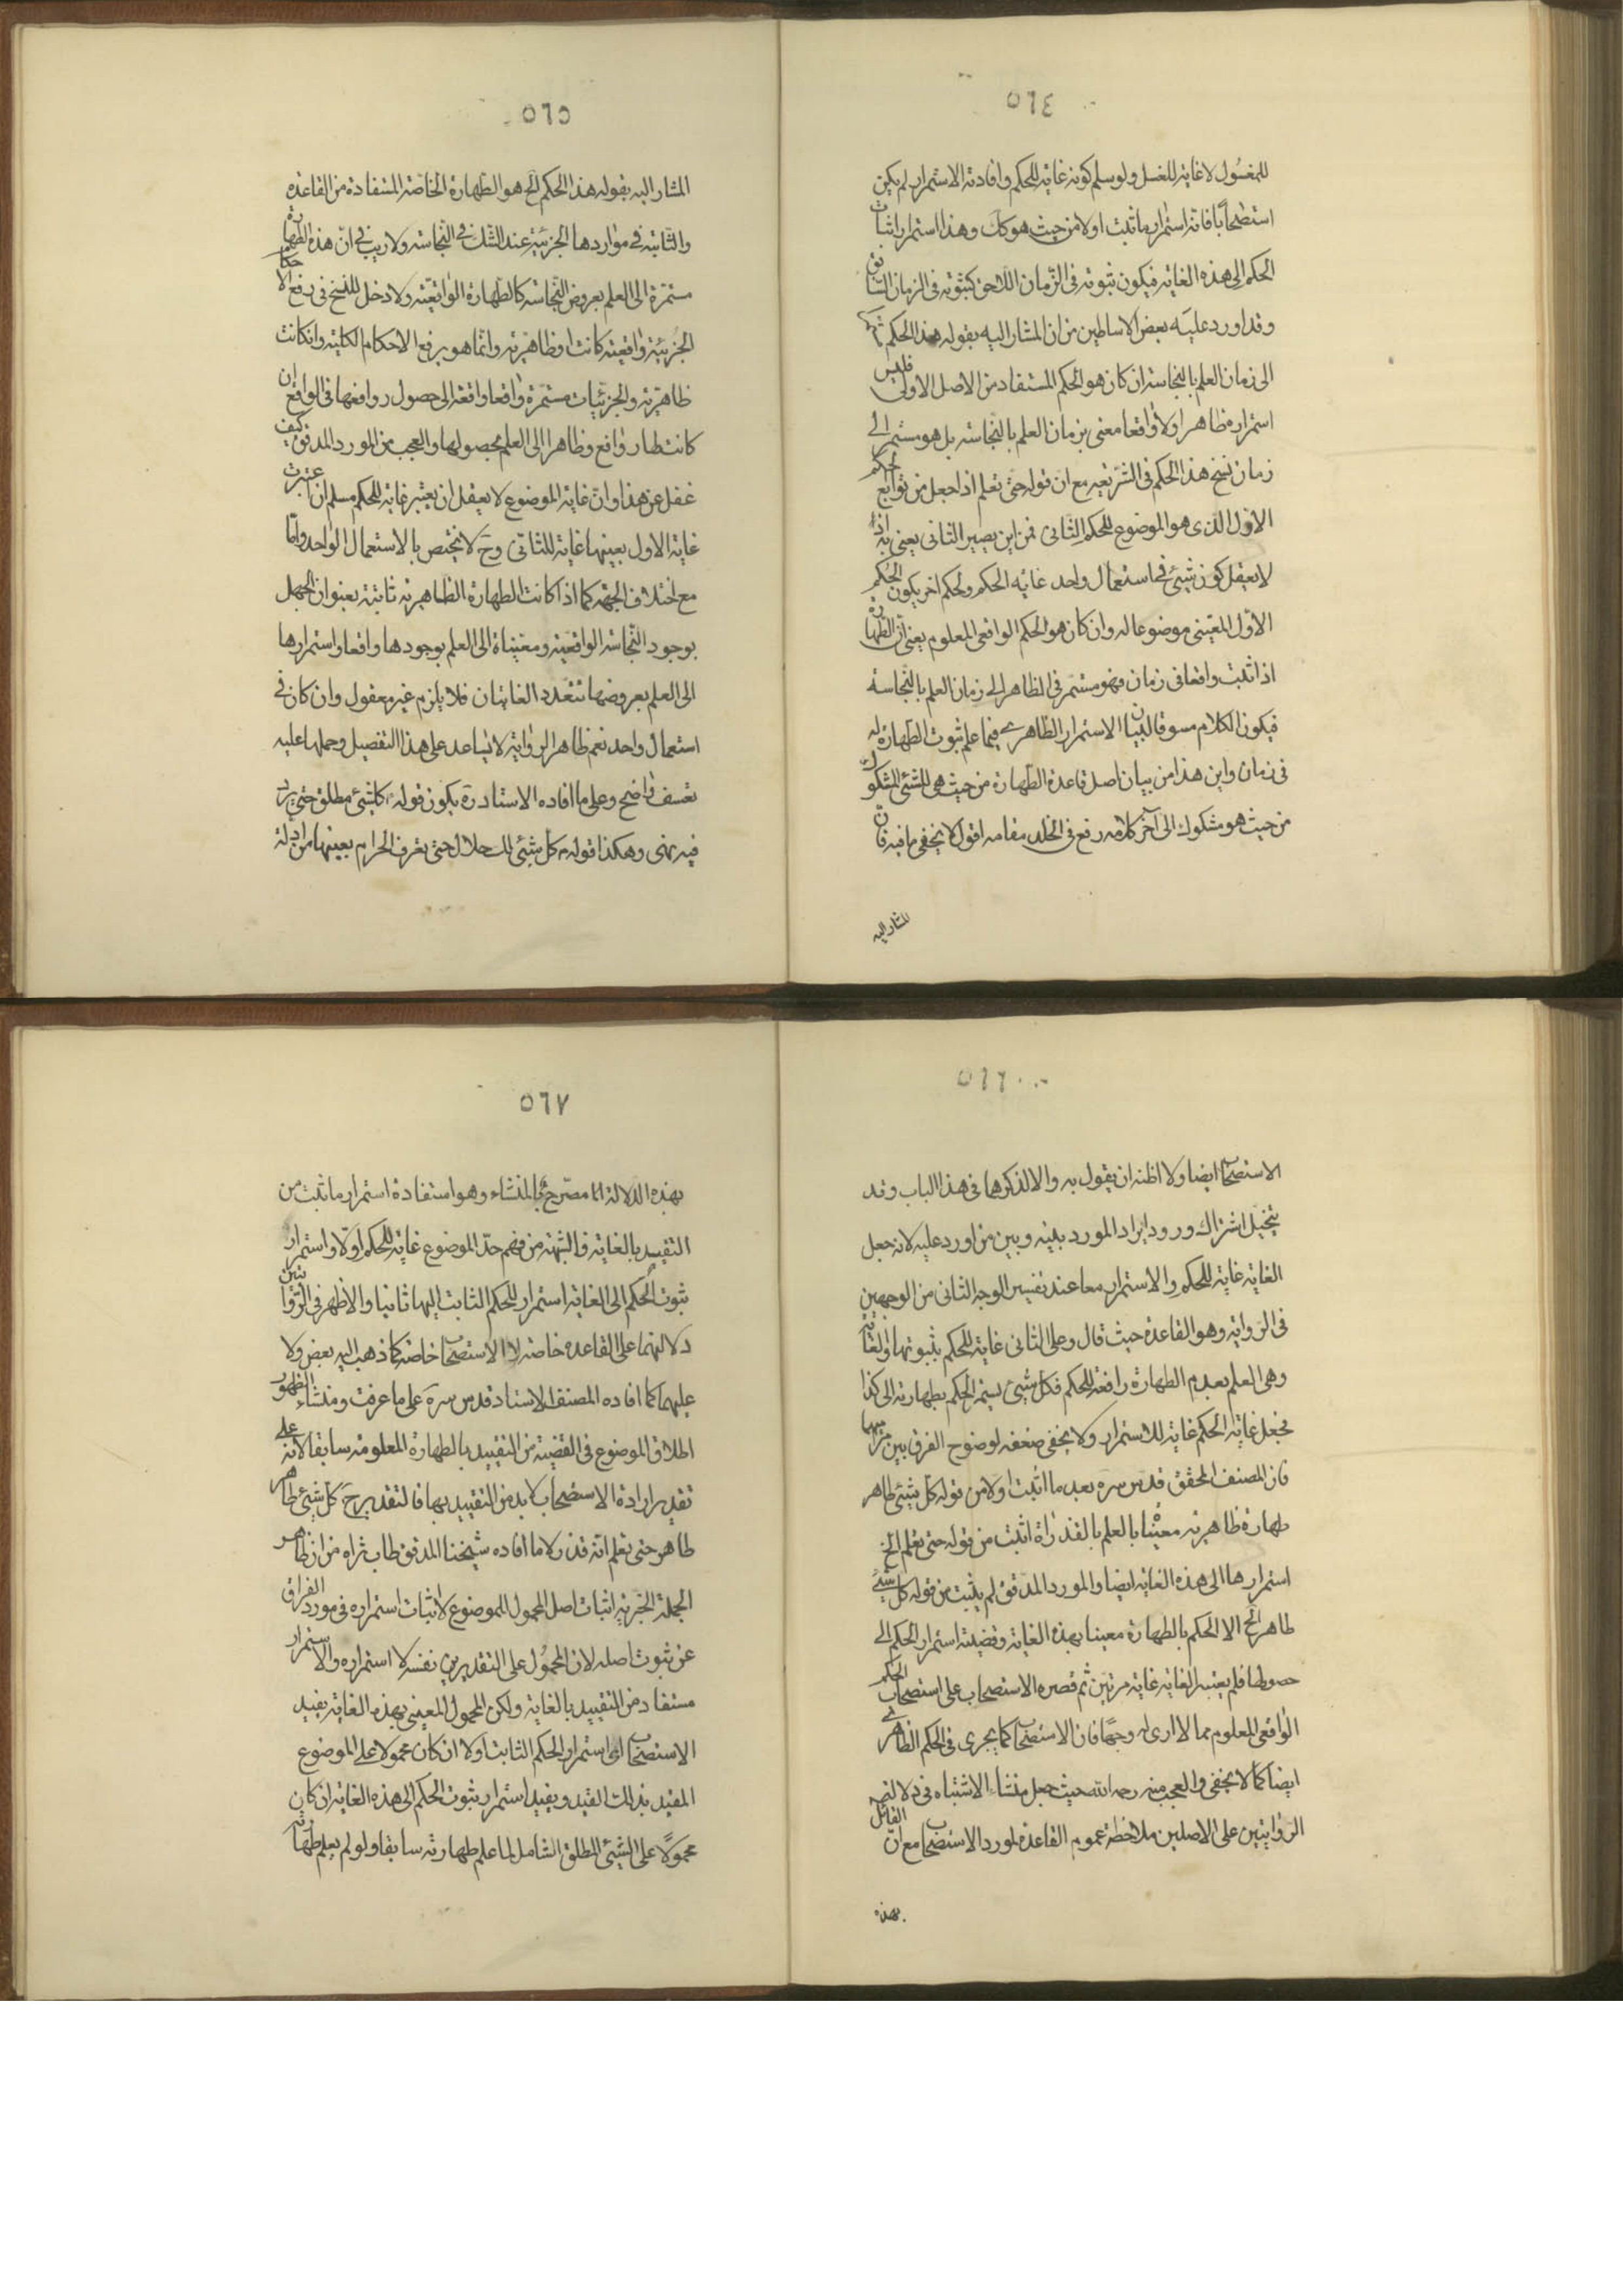 ٥٦٤
للمغسول لا غاية للغسل ولو سلم كونه غاية للحكم وافادته الاستمرار لم يكن
استصحابا فانه استمرار ما ثبت اولا من حيث هو كك وهذا استمرار اثبات
الحكم الى هذه الغاية فيكون ثبوته فى الزمان اللاحق كثبوته فى الزمان السابق
وقد اورد عليه بعض الاساطين من ان المشار اليه بقوله هذا الحكم
الى زمان العلم بالنجاسة ان كان هو الحكم المستفاد من الاصل الاولى فليس
استمراره ظاهرا ولا واقعا مغيى بزمان العلم بالنجاسة بل هو مستمر الى
زمان نسخ هذا الحكم فى الشريعة مع ان قوله حتى تعلم اذا جعل من توابع الحكم
الاول الذى هو الموضوع للحكم الثانى فمن اين يصير الثانى مغيى به اذ
لا يعقل كون شيئ فى استعمال واحد غاية الحكم ولحكم اخر يكون الحكم
الاول المغيى موضوعا له وان كان هو الحكم الواقعى المعلوم يعنى ان الطهارة
اذا ثبت واقعا فى زمان فهو مستمر فى الظاهر الى زمان العلم بالنجاسة
فيكون الكلام مسوقا لبيان الاستمرار الظاهرى فيما علم ثبوت الطهارة له
فى زمان واين هذا من بيان اصل قاعدة الطهارة من حيث هى للشئ المشكوك
من حيث هو مشكوك الى آخر كلامه رفع فى الخلد مقامه اقول لا يخفى ما فيه فان
المشار اليه
٥٦٥
المشار اليه بقوله هذا الحكم الخ هو الطهارة الخاصة المستفادة من القاعدة
والثابتة فى مواردها الجزئية عند الشك فى النجاسة ولا ريب فى ان هذه الطهارة
مستمرة الى العلم بعروض النجاسة كالطهارة الواقعية ولا دخل للنسخ فى رفع الاحكام
الجزئية واقعية كانت او ظاهرية وانما هو يرفع الاحكام الكلية وان كانت
ظاهرية والجزئيات مستمرة واقعا واقعة الى حصول روافعها فى الواقع ان
كانت لها روافع وظاهرا الى العلم بحصولها والعجب من المورد المدقق كيف
غفل عن هذا وان غاية الموضوع لا يعقل ان يعتبر غاية للحكم مسلم ان اعتبرت
غاية الاول بعينها غاية للثانى وح لا يختص بالاستعمال الواحد واما
مع اختلاف الجهة كما اذا كانت الطهارة الظاهرية ثابتة بعنوان الجهل
بوجود النجاسة الواقعية ومغياة الى العلم بوجودها واقعا واستمرارها
الى العلم بعروضها تتعدد الغايتان فلا يلزم غير معقول وان كان فى
استعمال واحد نعم ظاهر الرواية لا يساعد على هذا التفصيل وحملها عليه
تعسف واضح وعلى ما افاده الاستاد ره يكون قوله كل شئ مطلق حتى يرد
فيه نهى وهكذا قوله كل شئ لك حلال حتى تعرف الحرام بعينه من ادلة
٥٦٦
الاستصحاب ايضا ولا اظنه ان يقول به والا لذكرهما فى هذا الباب وقد
يتخيل اشتراك ورود ايراد المورد بينه وبين من اورد عليه لانه جعل
الغاية غاية للحكم والاستمرار معا عند تفسير الوجه الثانى من الوجهين
فى الرواية وهو القاعدة حيث قال وعلى الثانى غاية للحكم بثبوتها والغاية
وهى العلم بعدم الطهارة رافعة للحكم فكل شئ يستمر الحكم بطهارته الى كذا
فجعل غاية الحكم غاية للاستمرار ولا يخفى ضعفه لوضوح الفرق بين
فان المصنف المحقق قدس سره بعد ما اثبت اولا من قوله كل شئ طاهر
طهارة ظاهرية مغياة بالعلم بالقذارة اثبت من قوله حتى تعلم الخ
استمرارها الى هذه الغاية ايضا والمورد المدقق لم يثبت من قوله كل شئ
طاهر الخ الا الحكم بالطهارة مغيا بهذه الغاية وقضية استمرار الحكم الى
حصولها فلم يعتبر الغاية غاية مرتين ثم قصره الاستصحاب على استصحاب الحكم
الواقعى المعلوم مما لا ارى له وجها فان الاستصحاب كما يجرى فى الحكم الظاهرى
ايضا كما لا يخفى والعجب منه رحمه الله حيث جعل منشاء الاشتباه فى دلالة
الروايتين على الاصلين ملاحظة عموم القاعدة لمورد الاستصحاب مع ان القائل
بهذه
٥٦٧
بهذه الدلالة انما مصرح بالمنشاء وهو استفادة استمرار ما ثبت من
التقييد بالغاية والشبهة من فهم حد الموضوع غاية للحكم اولا واستمرار
ثبوت الحكم الى الغاية استمرار للحكم الثابت اليها ثانيا والاظهر فى الروايتين
دلالتهما على القاعدة خاصة لا الاستصحاب خاصة كما ذهب اليه بعض ولا
عليهما كما افاده المصنف الاستاد قدس سره على ما عرفت ومنشاء الظهور
اطلاق الموضوع فى القضية من التقييد بالطهارة المعلومة سابقا لانه على
تقدير ارادة الاستصحاب لا بد من التقييد بها فالتقدير ح كل شئ طاهر
طاهر حتى تعلم انه قذر لا ما افاده شيخنا المدقق طاب ثراه من ان ظاهر
الجملة الخبرية اثبات اصل المحمول للموضوع لا اثبات استمراره فى مورد الفراق
عن ثبوت اصله لان المحمول على التقديرين نفسه لا استمراره والاستمرار
مستفاد من التقييد بالغاية ولكن المحمول المغيى بهذه الغاية يفيد
الاستصحاب اى استمرار الحكم الثابت اولا ان كان محمولا على الموضوع
المقيد بذلك القيد ويفيد استمرار ثبوت الحكم الى هذه الغاية ان كان
محمولا على الشئ المطلق الشامل لما علم طهارته سابقا ولو لم يعلم طهارته